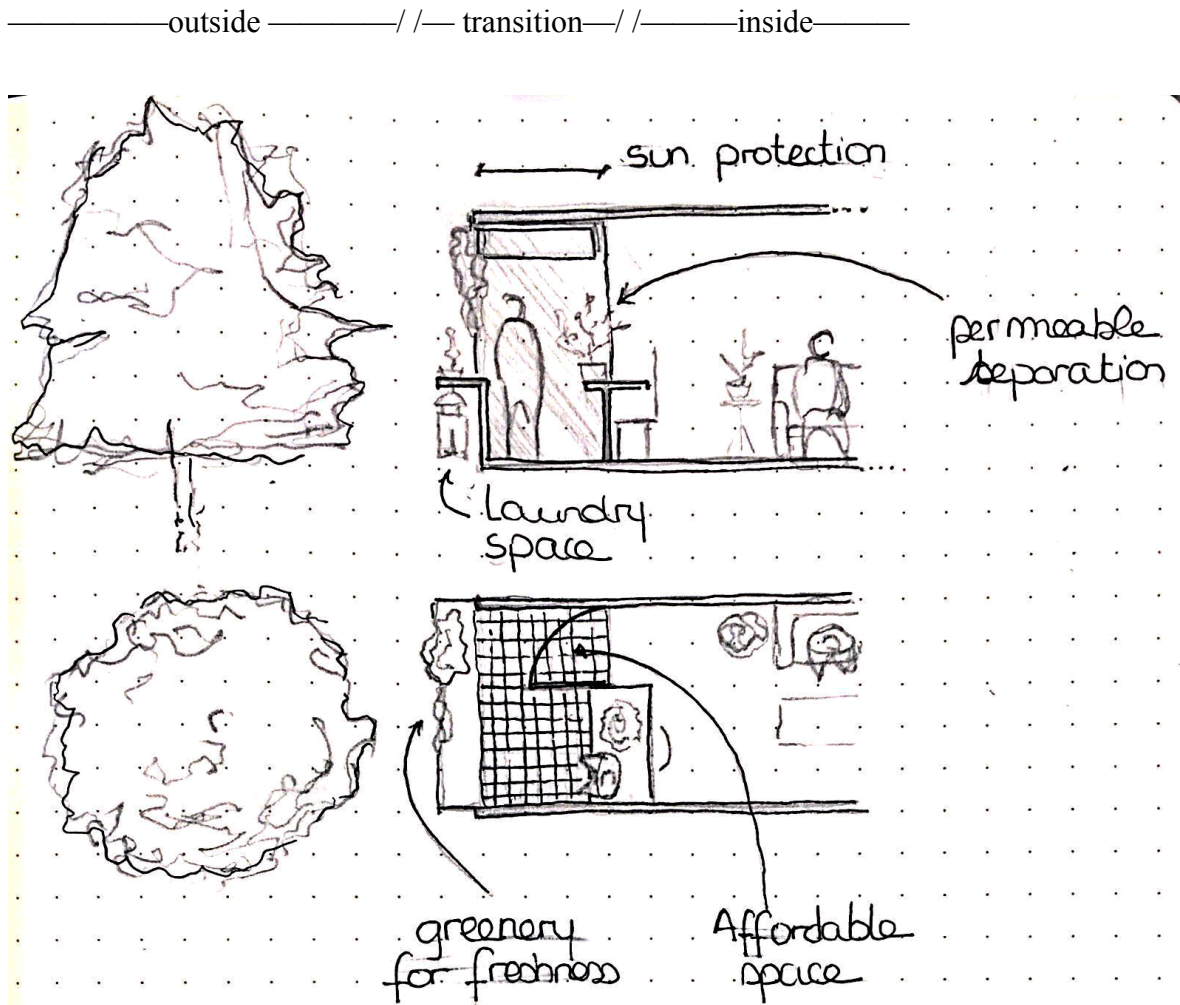 ———————outside —————/ /— transition—/ /————inside————
sun protection
permeable
separation
Laundry
space
greenery
for freshness
Affordable
space